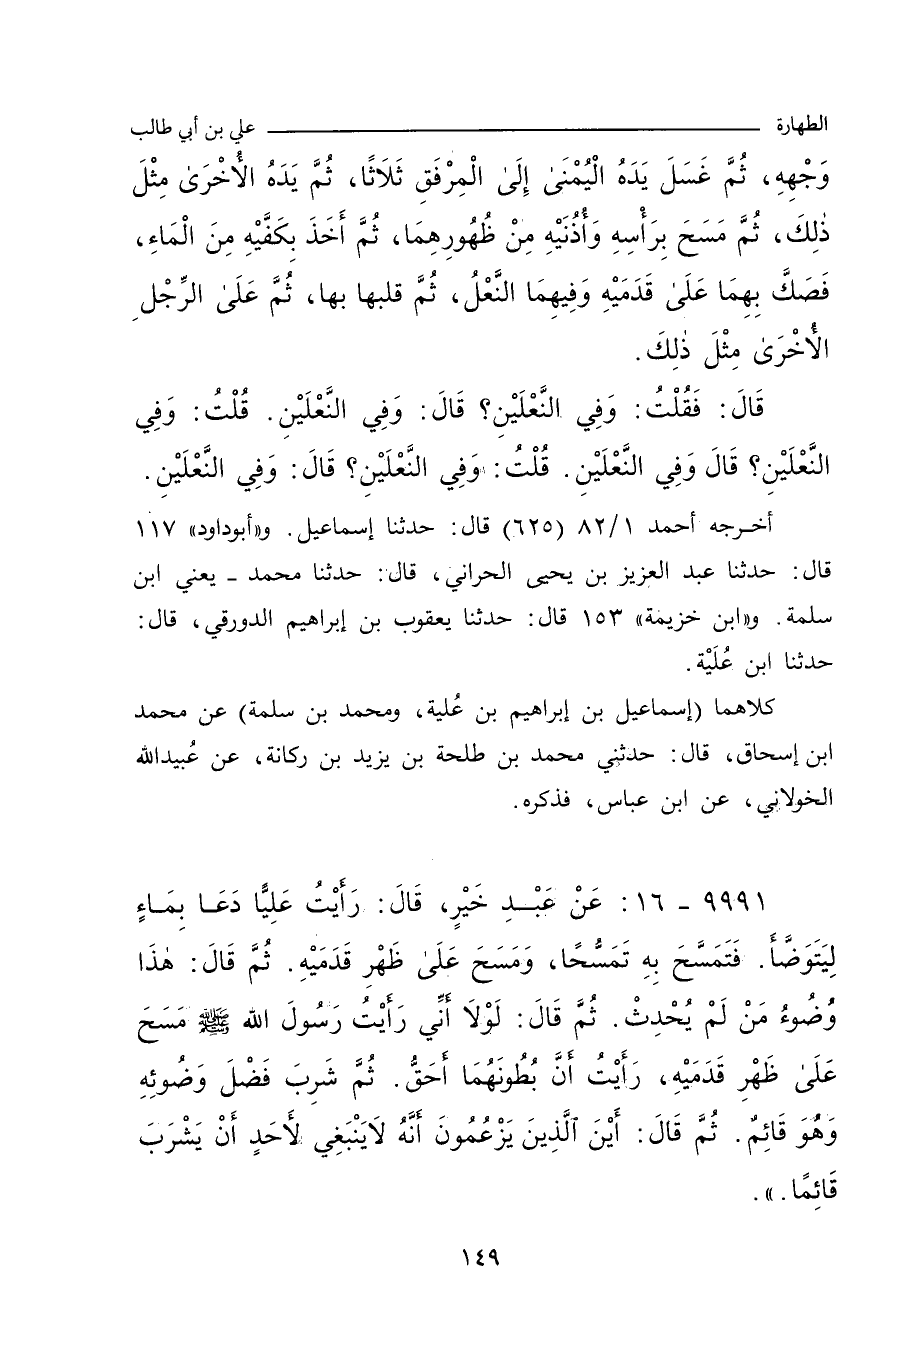 الطهارة ــــــــــ علي بن أبي طالب
وَجْهِهِ، ثُمَّ غَسَلَ يَدَهُ الْيُمْنَىٰ إِلَىٰ الْمِرْفَقِ ثَلَاثًا، ثُمَّ يَدَهُ الْأُخْرَىٰ مِثْلَ
ذٰلِكَ، ثُمَّ مَسَحَ بِرَأْسِهِ وَأُذُنَيْهِ مِنْ ظُهُورِهِمَا، ثُمَّ أَخَذَ بِكَفَّيْهِ مِنَ الْمَاءِ،
فَصَكَّ بِهِمَا عَلَىٰ قَدَمَيْهِ وَفِيهِمَا النَّعْلُ، ثُمَّ قلبها بها، ثُمَّ عَلَىٰ الرِّجْلِ
الْأُخْرَىٰ مِثْلَ ذٰلِكَ.
قَالَ: فَقُلْتُ: وَفِي النَّعْلَيْنِ؟ قَالَ: وَفِي النَّعْلَيْنِ. قُلْتُ: وَفِي
النَّعْلَيْنِ؟ قَالَ وَفِي النَّعْلَيْنِ. قُلْتُ: وَفِي النَّعْلَيْنِ؟ قَالَ: وَفِي النَّعْلَيْنِ.
أخرجه أحمد ٨٢/١ (٦٢٥) قال: حدثنا إسماعيل. و«أبوداود» ١١٧
قال: حدثنا عبد العزيز بن يحيى الحراني، قال: حدثنا محمد ـ يعني ابن
سلمة. و«ابن خزيمة» ١٥٣ قال: حدثنا يعقوب بن إبراهيم الدورقي، قال:
حدثنا ابن عُلَيْة.
كلاهما (إسماعيل بن إبراهيم بن عُلية، ومحمد بن سلمة) عن محمد
ابن إسحاق، قال: حدثني محمد بن طلحة بن يزيد بن ركانة، عن عُبيدالله
الخولاني، عن ابن عباس، فذكره.
٩٩٩١ ـ ١٦: عَنْ عَبْدِ خَيْرٍ، قَالَ: رَأَيْتُ عَلِيًّا دَعَا بِمَاءٍ
لِيَتَوَضَّأَ. فَتَمَسَّحَ بِهِ تَمَسُّحًا، وَمَسَحَ عَلَىٰ ظَهْرِ قَدَمَيْهِ. ثُمَّ قَالَ: هٰذَا
وُضُوءُ مَنْ لَمْ يُحْدِثْ. ثُمَّ قَالَ: لَوْلَا أَنِّي رَأَيْتُ رَسُولَ الله ﷺ مَسَحَ
عَلَىٰ ظَهْرِ قَدَمَيْهِ، رَأَيْتُ أَنَّ بُطُونَهُمَا أَحَقُّ. ثُمَّ شَرِبَ فَضْلَ وَضُوئِهِ
وَهُوَ قَائِمٌ. ثُمَّ قَالَ: أَيْنَ ٱلَّذِينَ يَزْعُمُونَ أَنَّهُ لاَيَنْبَغِي لأَحَدٍ أَنْ يَشْرَبَ
قَائِمًا.».
١٤٩